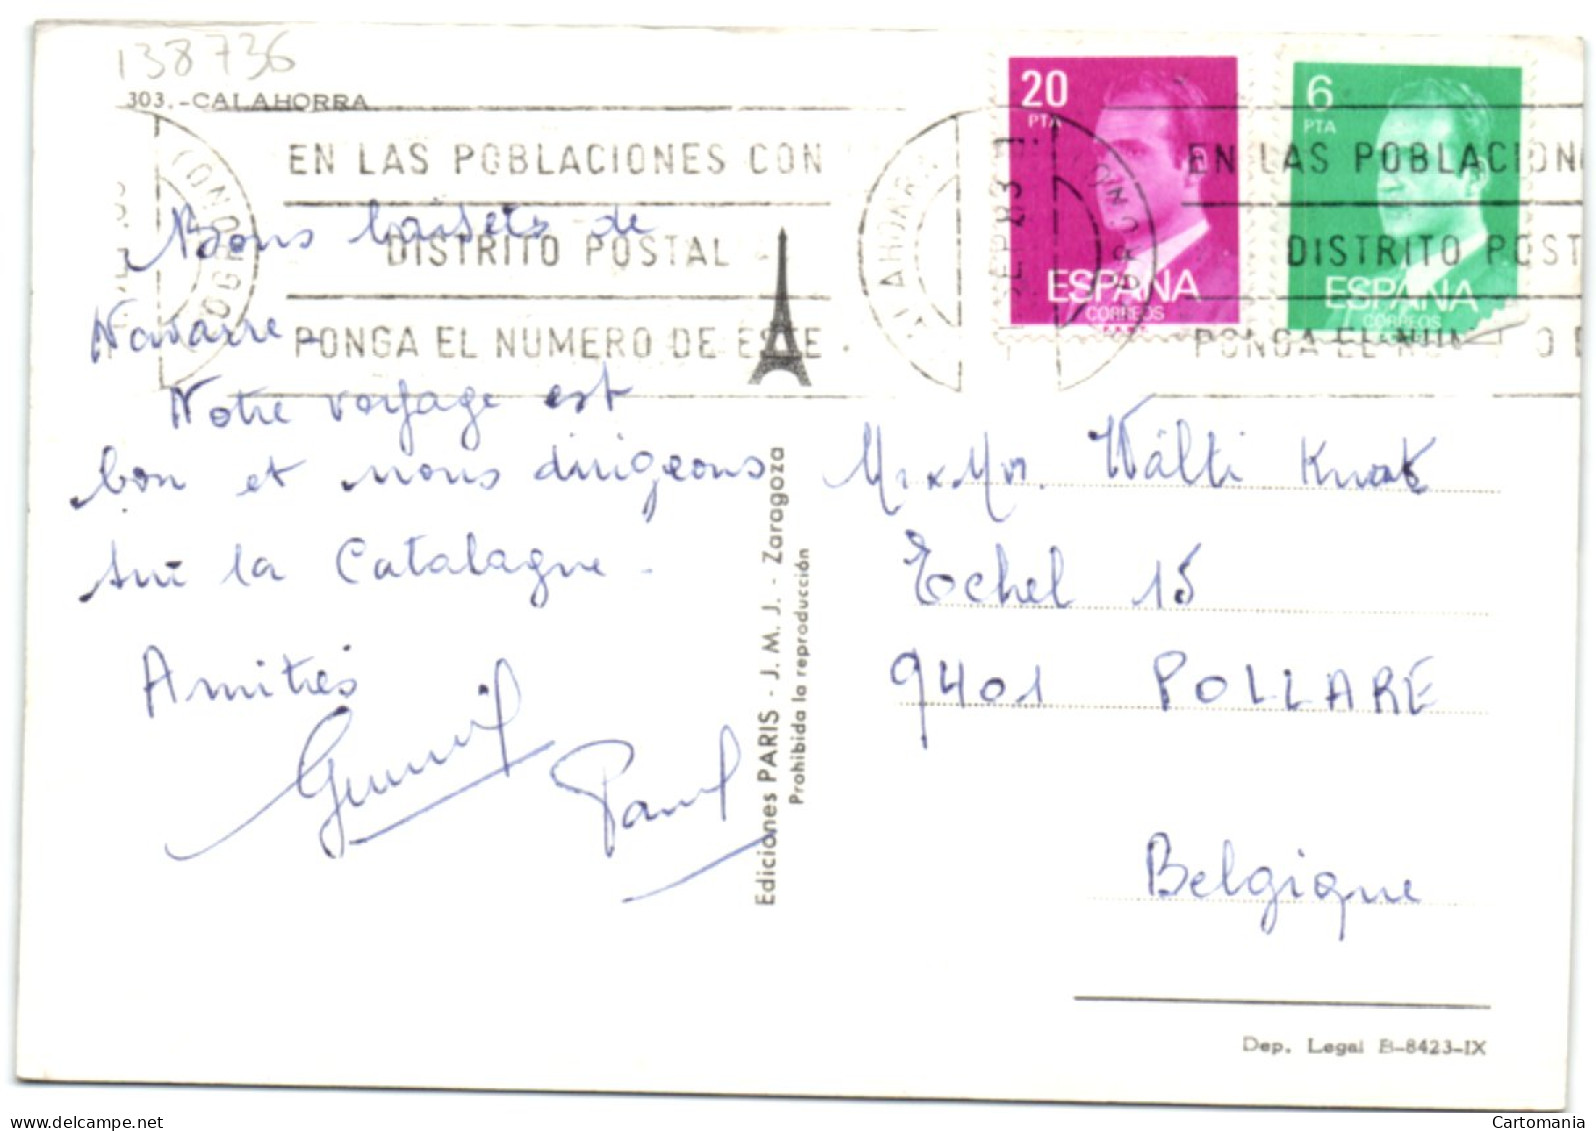 138736
303.-CALAHORRA
EN LAS POBLACIONES CON
DISTRITO POSTAL
PONGA EL NUMERO DE ESTE
CALAHORRA
LOGROÑO
20
PTA
ESPAÑA
CORREOS
6
PTA
ESPAÑA
CORREOS
EN LAS POBLACION
DISTRITO POST
PONGA EL NUM O D
Bons baisers de
Navarre -
Notre voyage est
bon et nous dirigeons
sur la Catalogne -
Amitiés
Paul
Ediciones PARIS - J. M. J. - Zaragoza
Prohibida la reproducción
Mr x Mm. Wälti
Echel 15
9401 POLLARE
Belgique
Dep. Legal B-8423-IX
Cartomania